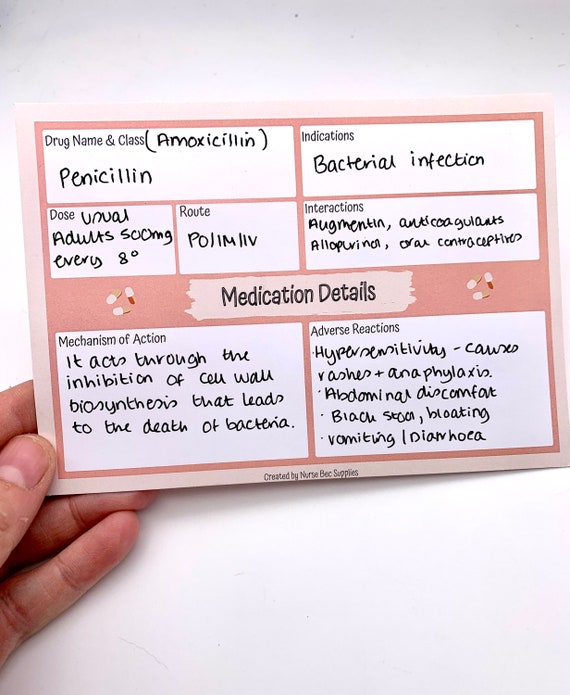 Drug Name & Class (Amoxicillin)
Penicillin
Indications
Bacterial infection
Dose usual
Adults 500mg
every 8°
Route
PO/IM/IV
Interactions
Augmentin, anticoagulants
Allopurinol, oral contraceptives
Medication Details
Mechanism of Action
It acts through the
inhibition of cell wall
biosynthesis that leads
to the death of bacteria.
Adverse Reactions
·Hypersensitivity - causes
rashes + anaphylaxis.
· Abdominal discomfort
· Black stool, bloating
· vomiting / Diarrhoea
Created by Nurse Bec Supplies